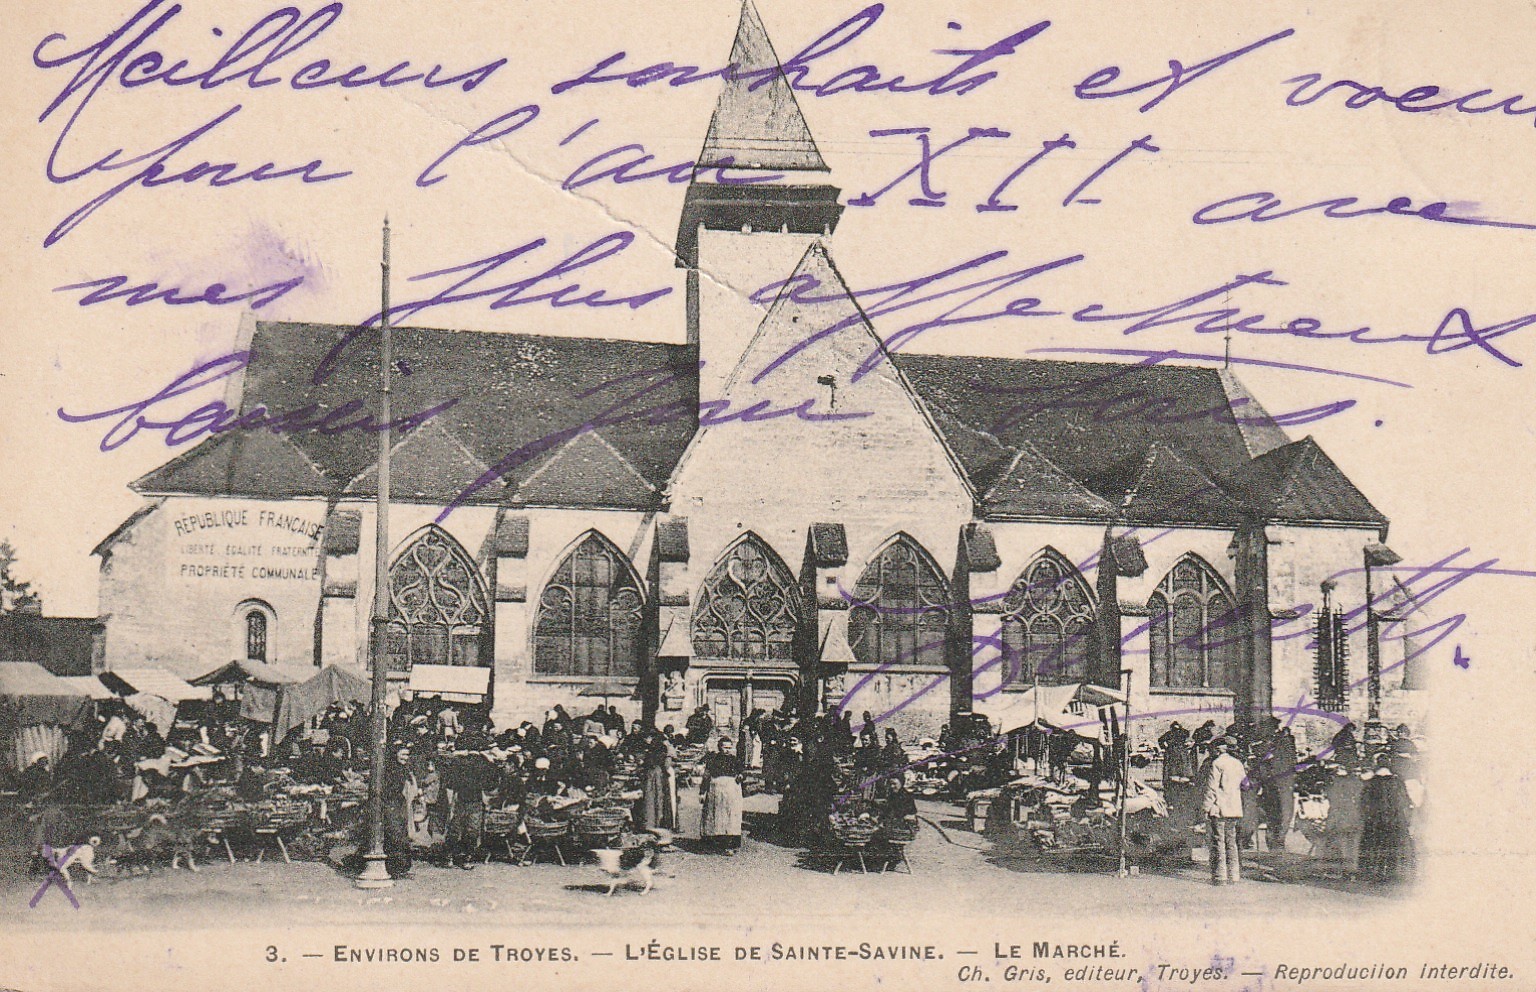 Meilleurs souhaits et voeux
pour l'an XII avec
mes plus affectueux
baisers pour tous.
RÉPUBLIQUE FRANÇAISE
LIBERTÉ, EGALITÉ FRATERNITÉ
PROPRIÉTÉ COMMUNALE
3. — ENVIRONS DE TROYES. — L'ÉGLISE DE SAINTE-SAVINE. — LE MARCHÉ.
Ch. Gris, editeur, Troyes. — Reproduciion interdite.